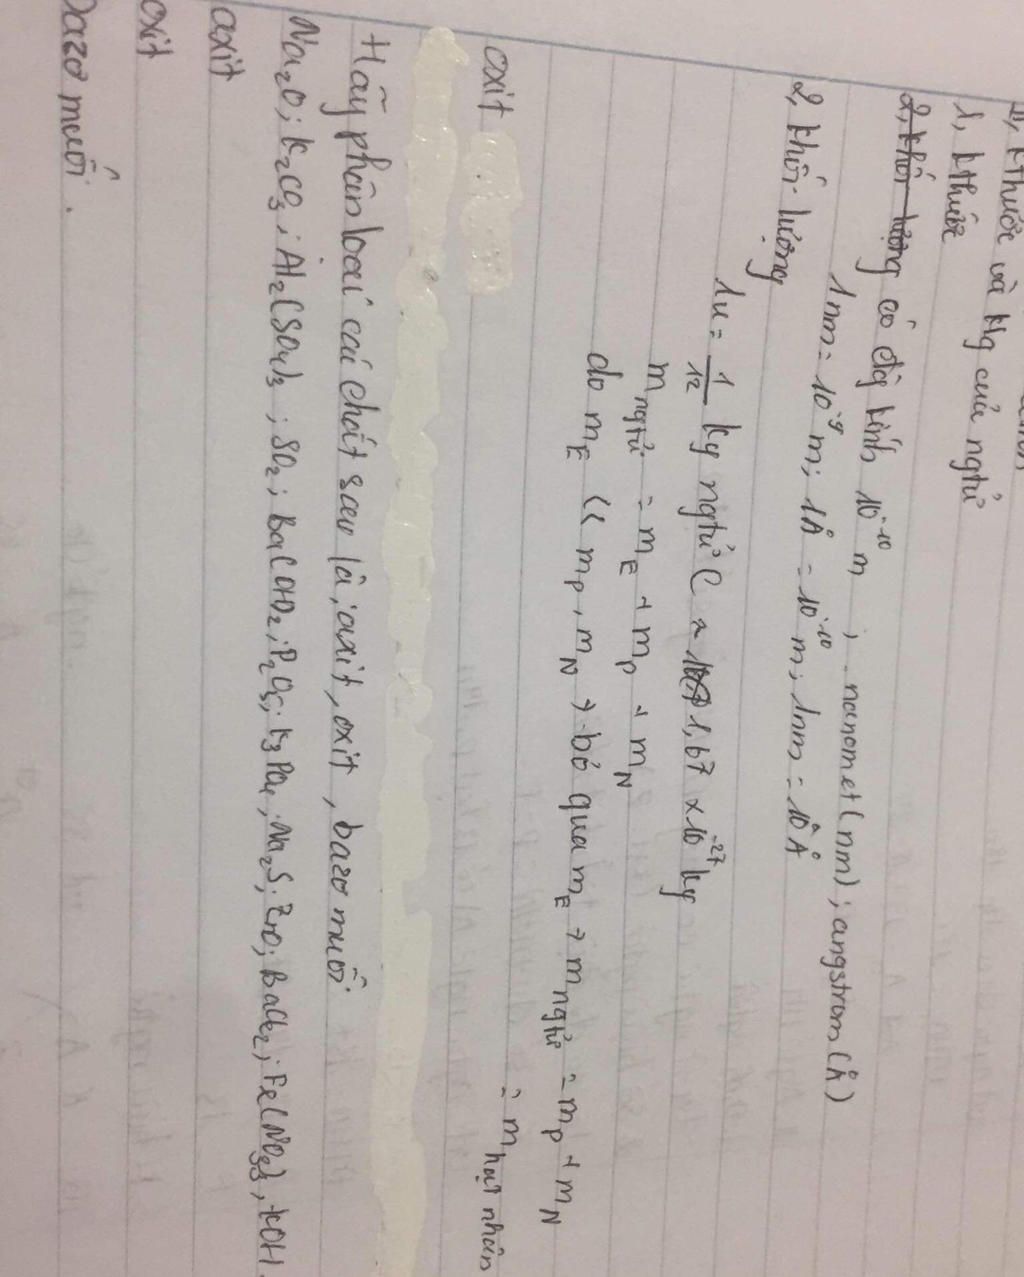 II, kthước và klg của ngtử
1, kthước
2, khối lượng có đg kính 10⁻¹⁰ m ; nanomet (nm) ; angstrom (Å)
1nm = 10⁻⁹ m; 1Å = 10⁻¹⁰ m; 1nm = 10Å
2, khối lượng
1u = 1/12 kg ngtử C ≈ 1,67 x 10⁻²⁷ kg
m ngtử = mE + mP + mN
do mE << mP, mN → bỏ qua mE → m ngtử = mP + mN
= m hạt nhân
oxit
Hãy phân loại các chất sau là axit, oxit, bazơ muối
Na₂O; K₂CO₃; Al₂(SO₄)₃; SO₂; Ba(OH)₂; P₂O₅; K₃PO₄; Na₂S; ZnO; BaCl₂; Fe(NO₃)₃, KOH.
axit
oxit
bazơ muối.